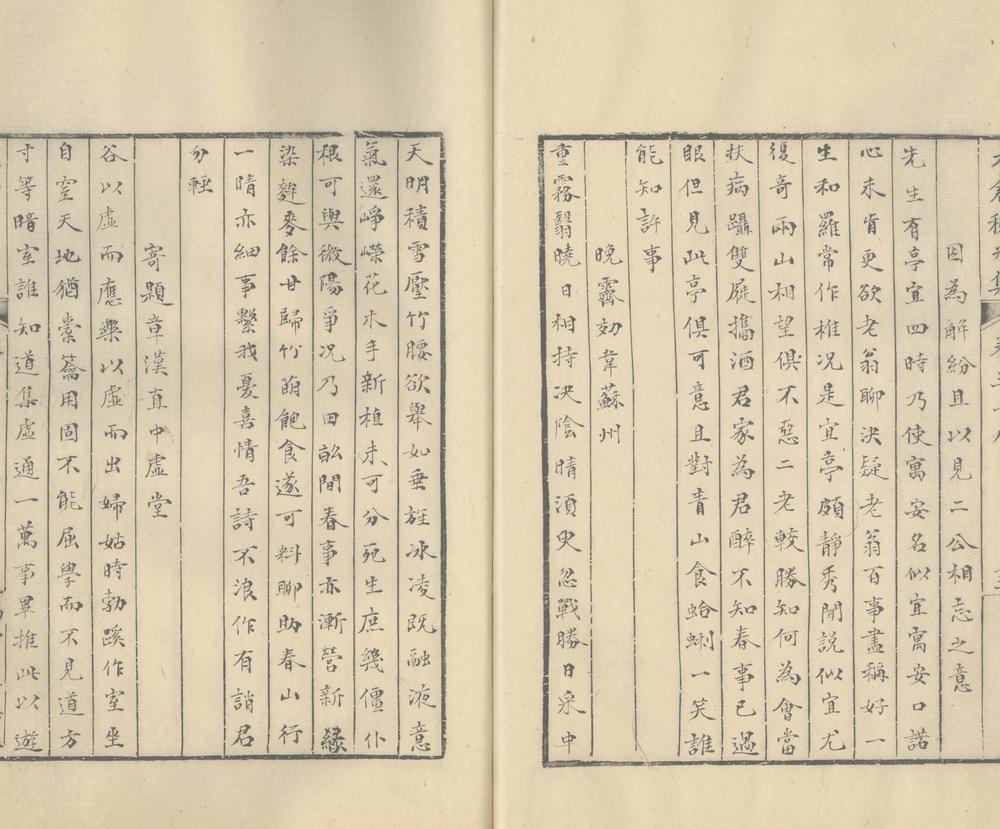 因為解紛且以見二公相忘之意
先生有亭宜四時乃使寓安名似宜寓安口諾
心未肯更欲老翁聊決疑老翁百事盡稱好一
生和羅常作椎况是宜亭頗靜秀聞說似宜尤
復奇兩山相望俱不惡二老較勝知何為會當
扶病躡雙屐攜酒君家為君醉不知春事已過
眼但見此亭俱可意且對青山食蛤蜊一笑誰
能知許事
晚霽効韋蘇州
重霧翳曉日相持決陰晴須臾忽戰勝日采中
天明積雪壓竹腰欲舉如垂旌冰凌既融液意
氣還崢嶸花木手新植未可分死生庶幾僵仆
根可與微陽爭况乃田訟間春事亦漸營新緑
染麰麥餘甘歸竹萌飽食遂可料聊助春山行
一晴亦細事繫我憂喜情吾詩不浪作有誚君
勿輕
寄題章漢直中虛堂
谷以虛而應樂以虛而出婦姑時勃蹊作室坐
自窒天地猶橐籥用固不能屈學而不見道方
寸等暗室誰知道集虛通一萬事畢推此以遊